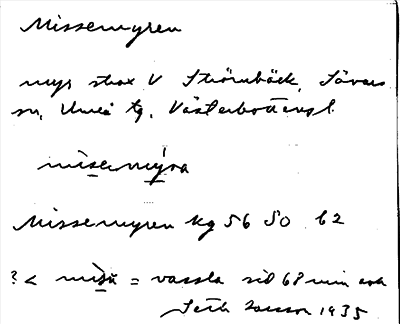 Missemyren
myr strax V Strömbäck, Sävars
sn, Umeå tg, Västerbottens l.
misemýra
Missemyren kg 56 SO b2
? < misu = vassla sid 68 min
Seth 1935